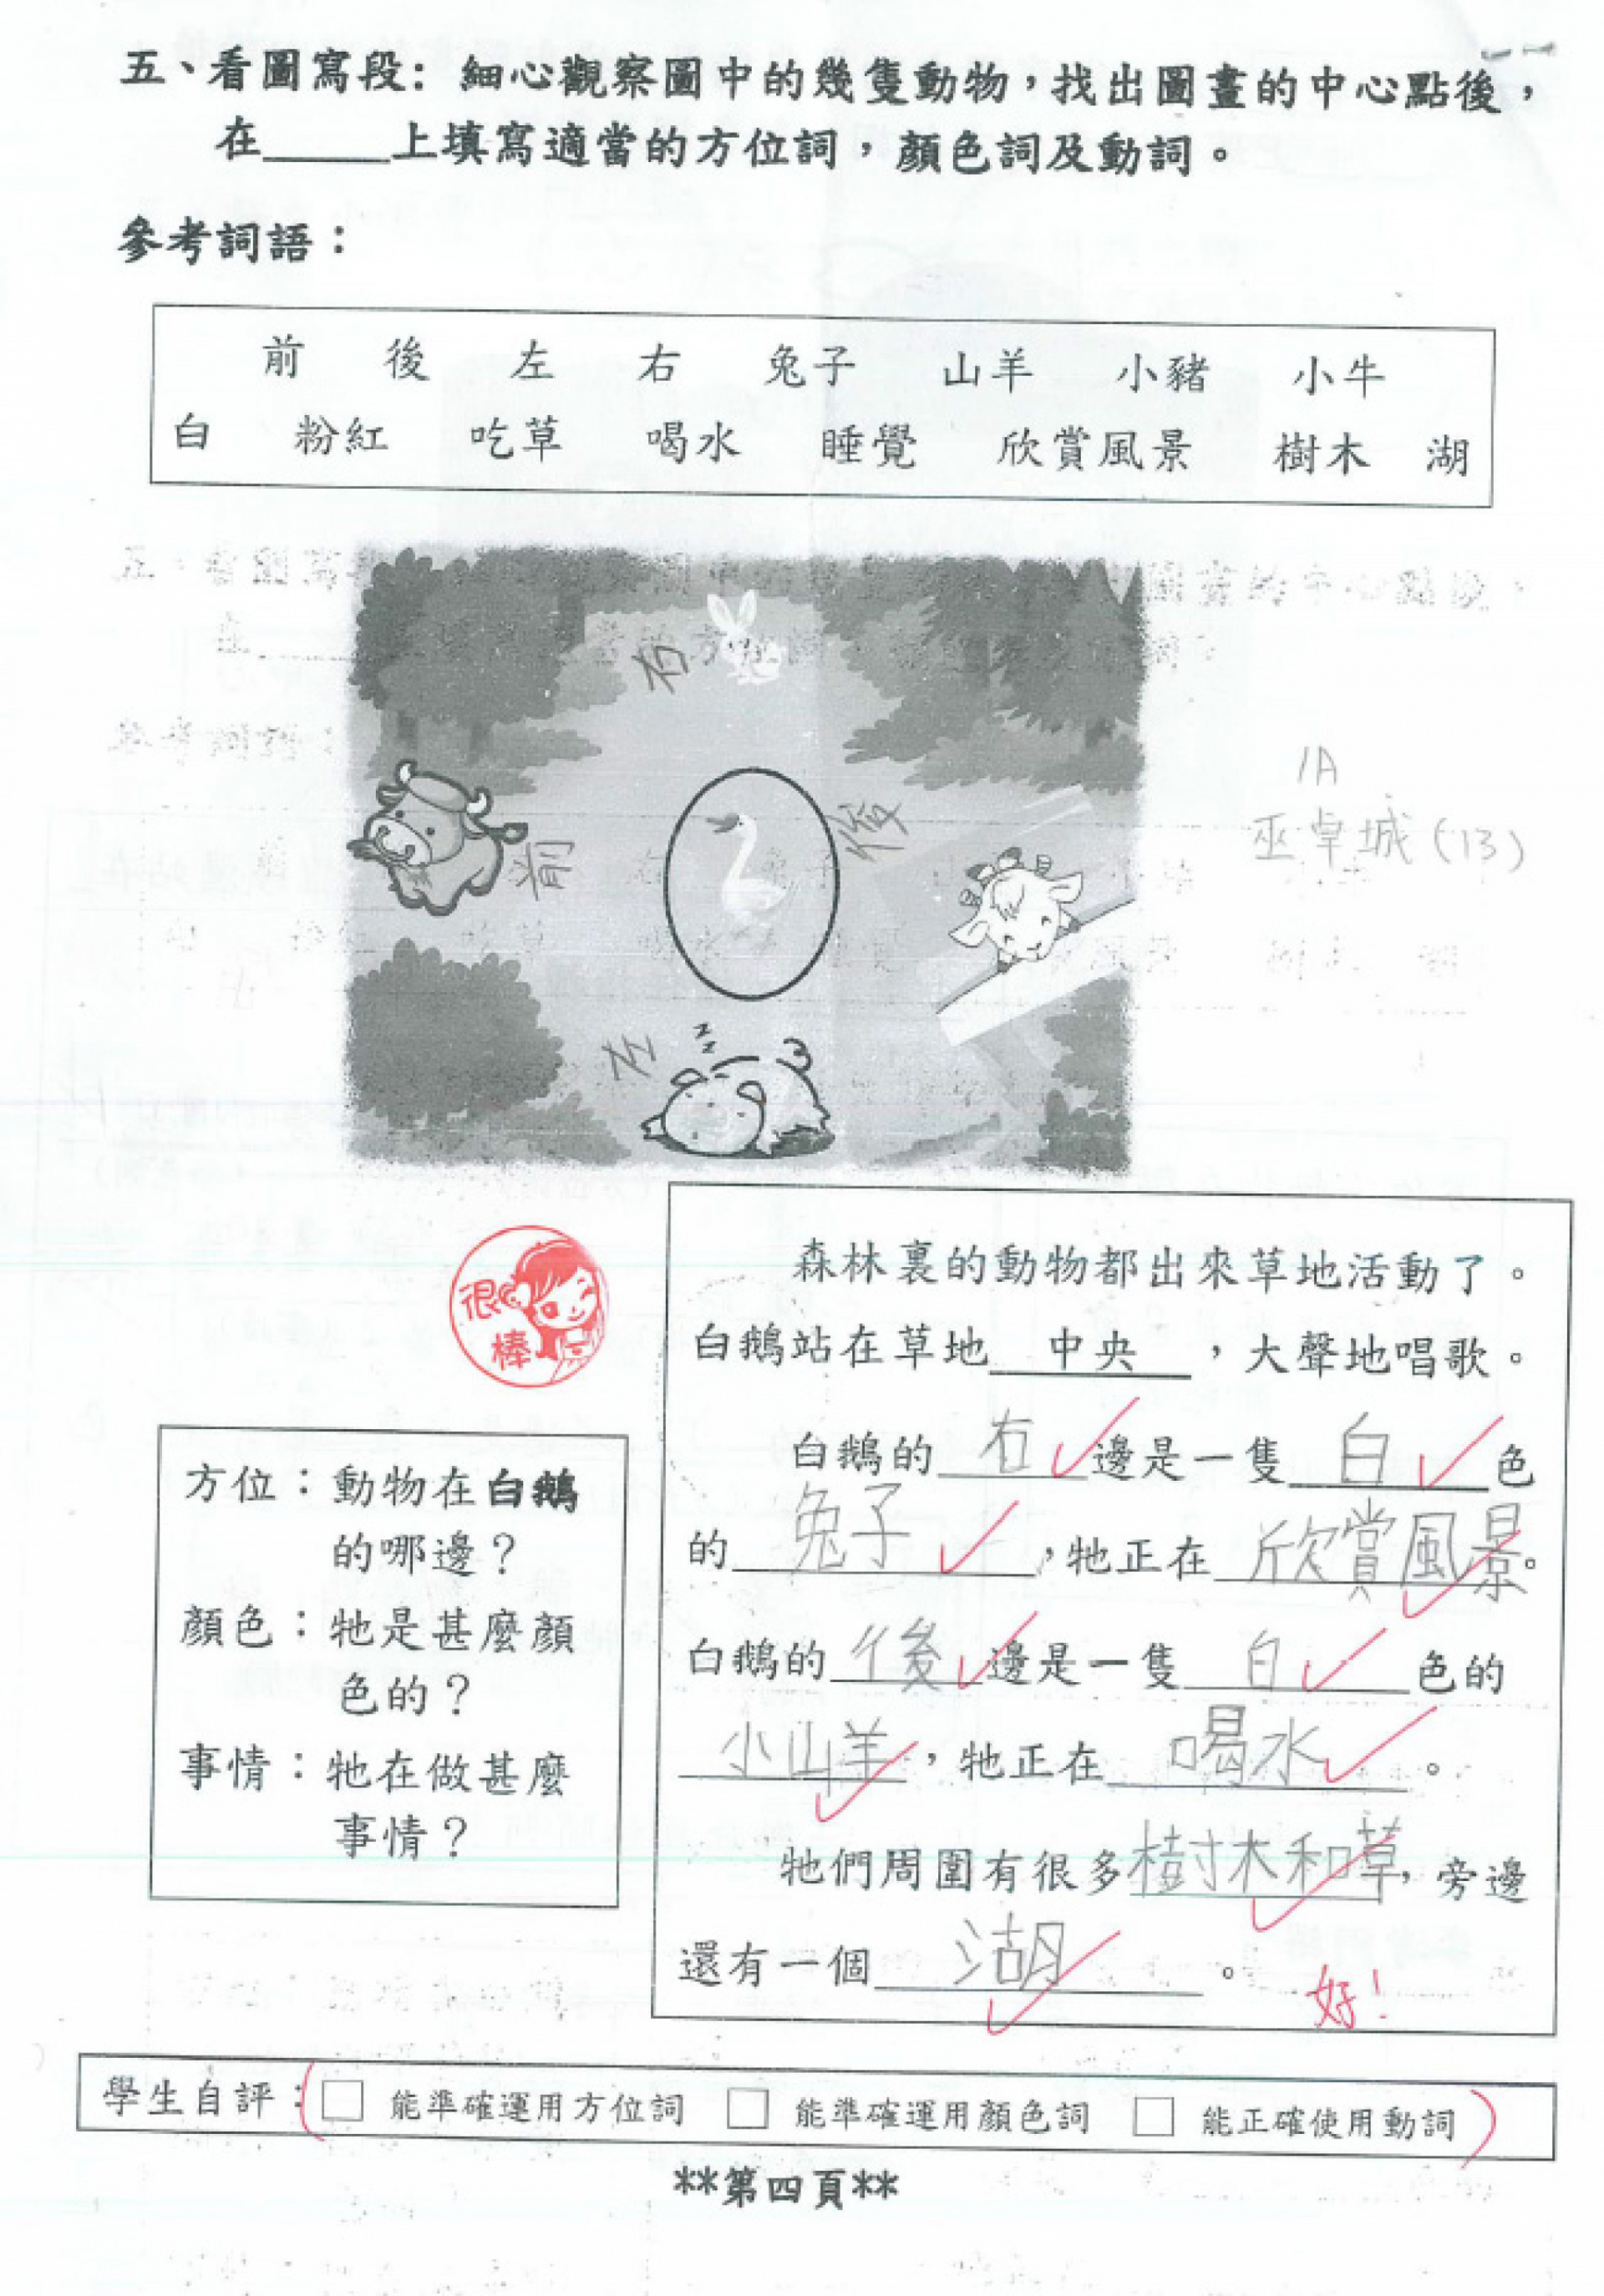 五、看圖寫段：細心觀察圖中的幾隻動物，找出圖畫的中心點後，
在_____上填寫適當的方位詞，顏色詞及動詞。
參考詞語：
前 後 左 右 兔子 山羊 小豬 小牛
白 粉紅 吃草 喝水 睡覺 欣賞風景 樹木 湖
右
前
後
左
z
z
1A
巫卓城(13)
很棒
森林裏的動物都出來草地活動了。
白鵝站在草地 中央 ，大聲地唱歌。
白鵝的 右 邊是一隻 白 色
的 兔子 ，牠正在 欣賞風景。
白鵝的 後 邊是一隻 白 色的
小山羊 ，牠正在 喝水 。
牠們周圍有很多樹木和草，旁邊
還有一個 湖 。
好！
方位：動物在白鵝
的哪邊？
顏色：牠是甚麼顏
色的？
事情：牠在做甚麼
事情？
學生自評：(□ 能準確運用方位詞 □ 能準確運用顏色詞 □ 能正確使用動詞)
**第四頁**